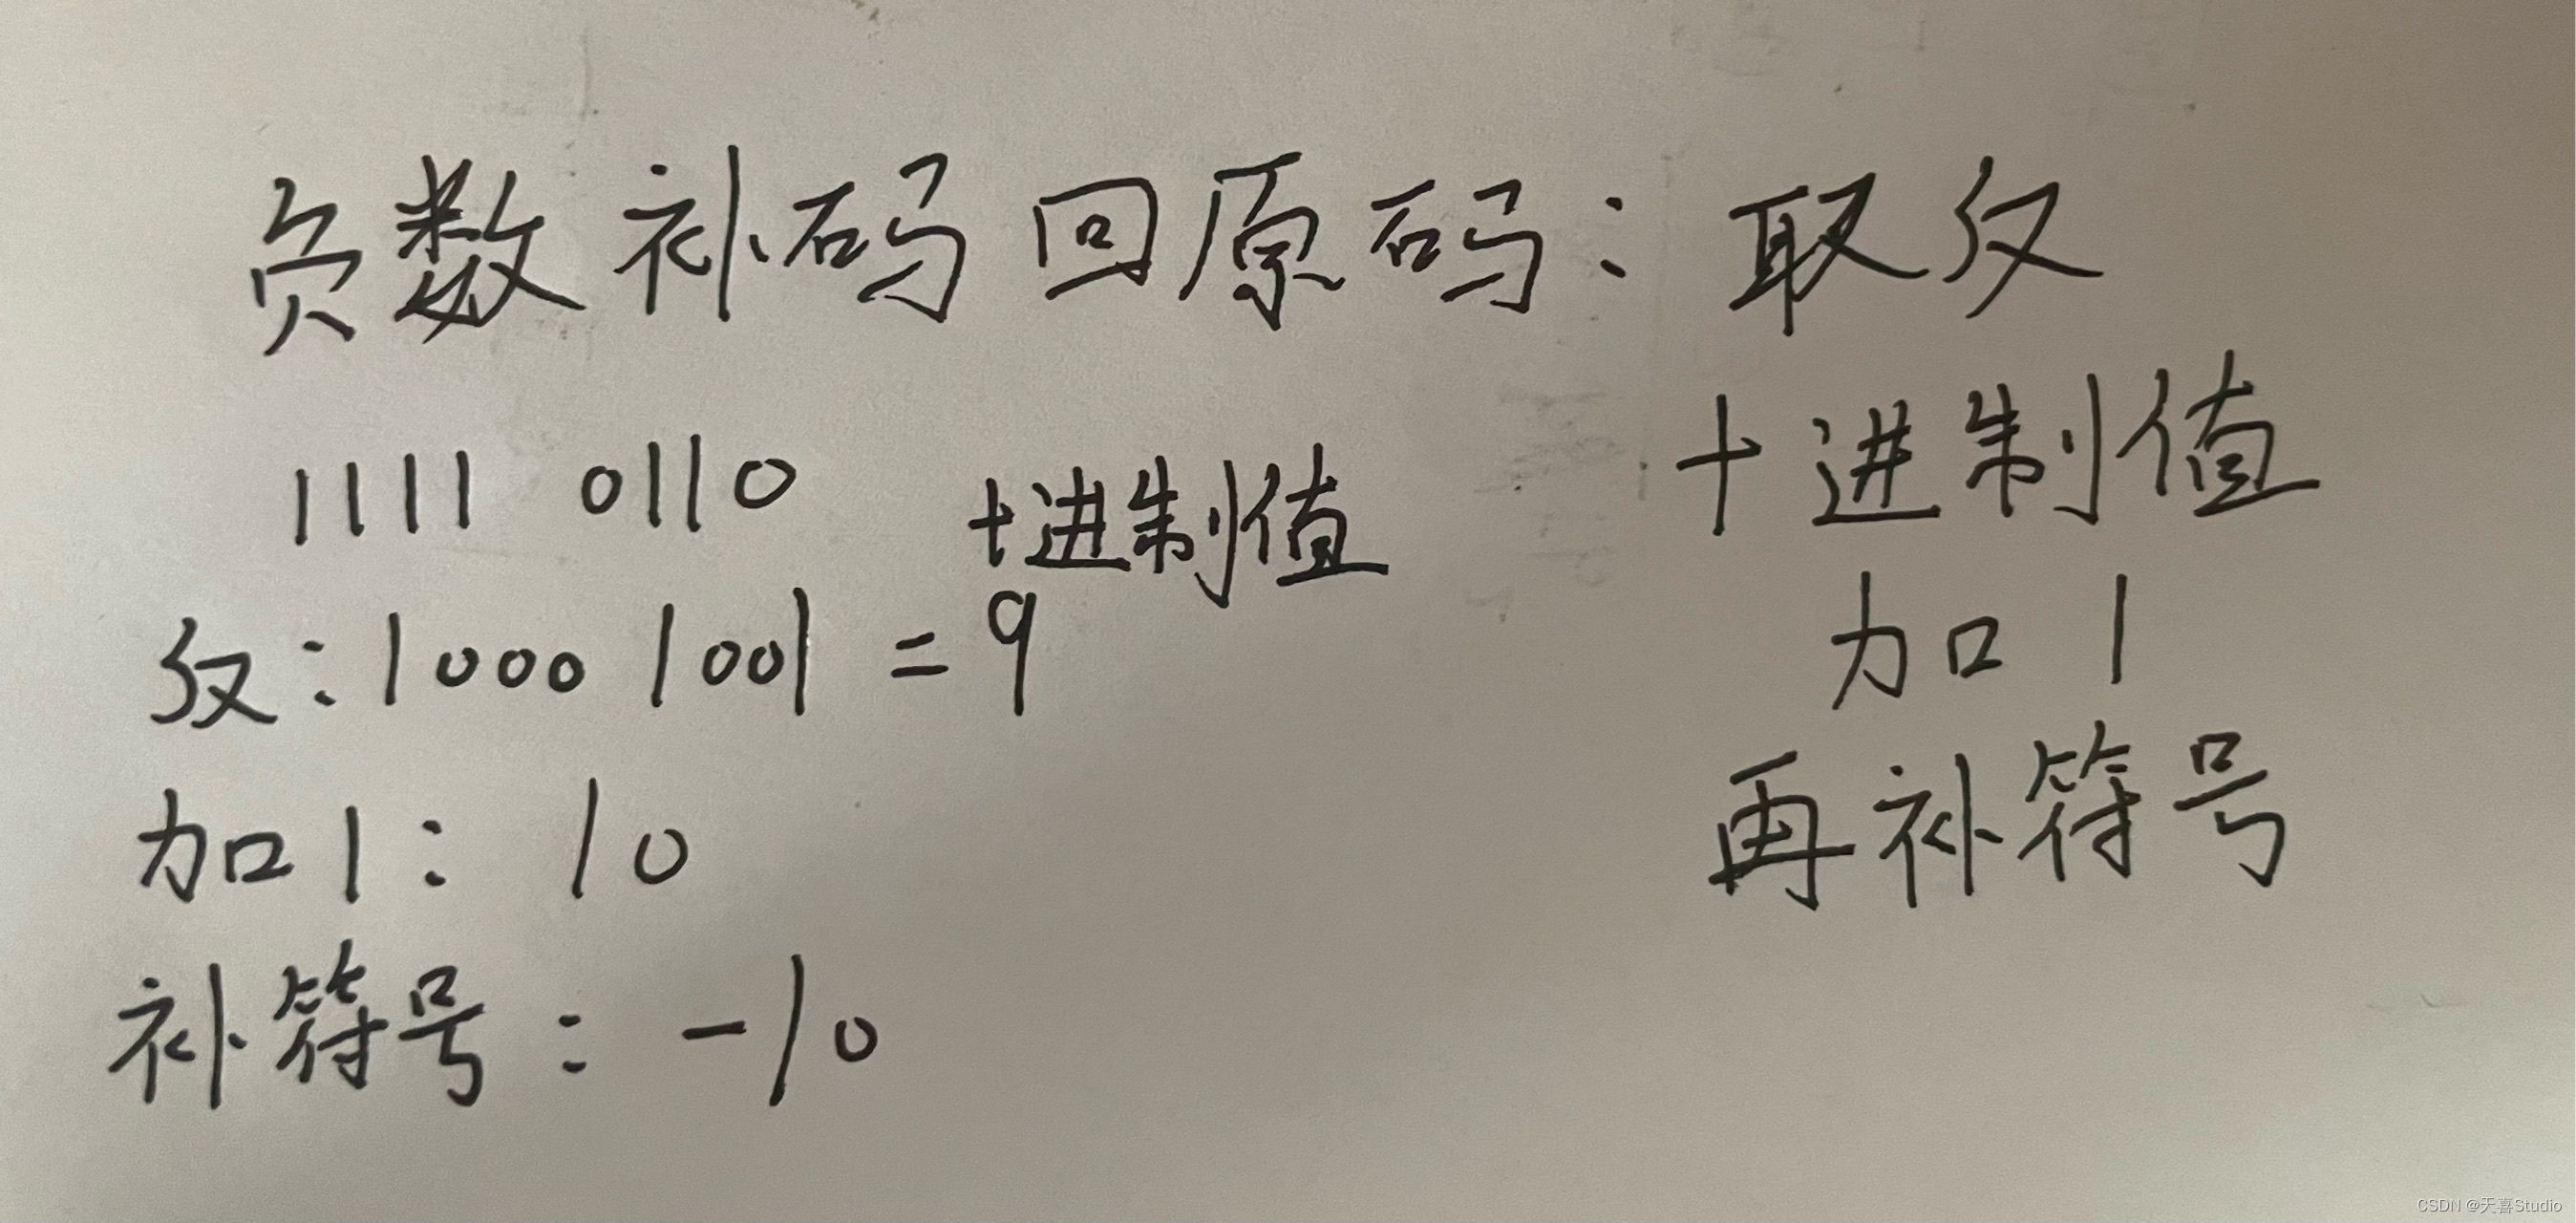 负数补码回原码：取反
十进制值
加1
再补符号
1111 0110
十进制值
反：1000 1001 = 9
加1： 10
补符号：-10
CSDN @天喜Studio